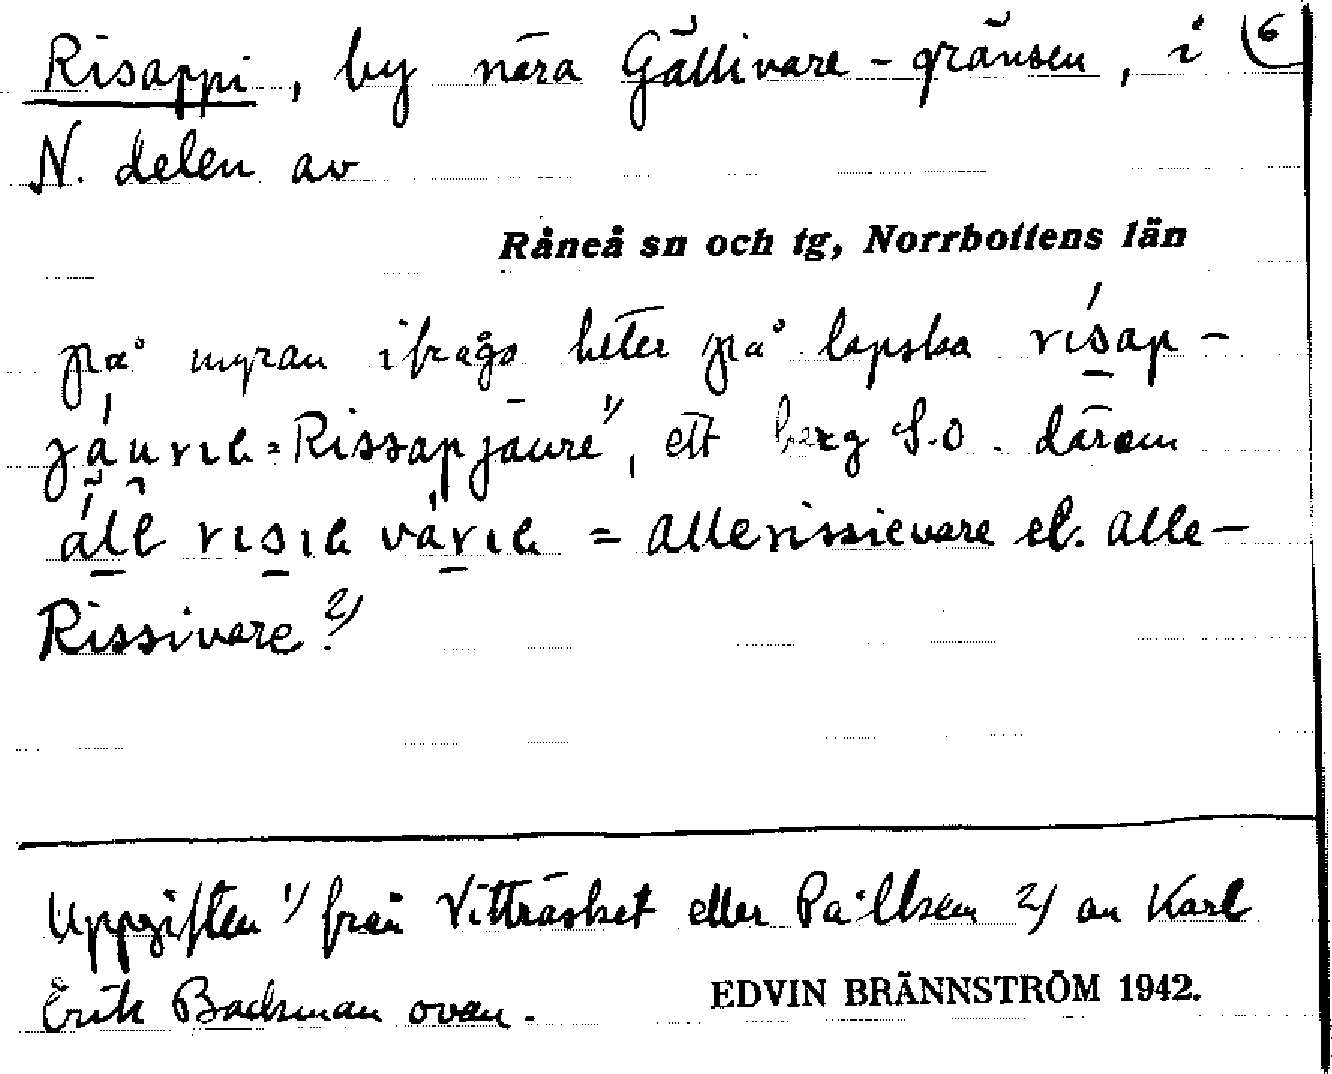 Risappi, by nära Gällivare-gränsen, i 6
N. delen av
Råneå sn och tg, Norrbottens län
på myran ifråga heter på lapska rísap-
= Rissapjaure 1), ett berg S.O. därom
= Allerissievare el. Alle-
Rissivare? 2)
Uppgiften 1) från Vitträsket eller 2) av Karl
Erik Backman ovan.
EDVIN BRÄNNSTRÖM 1942.